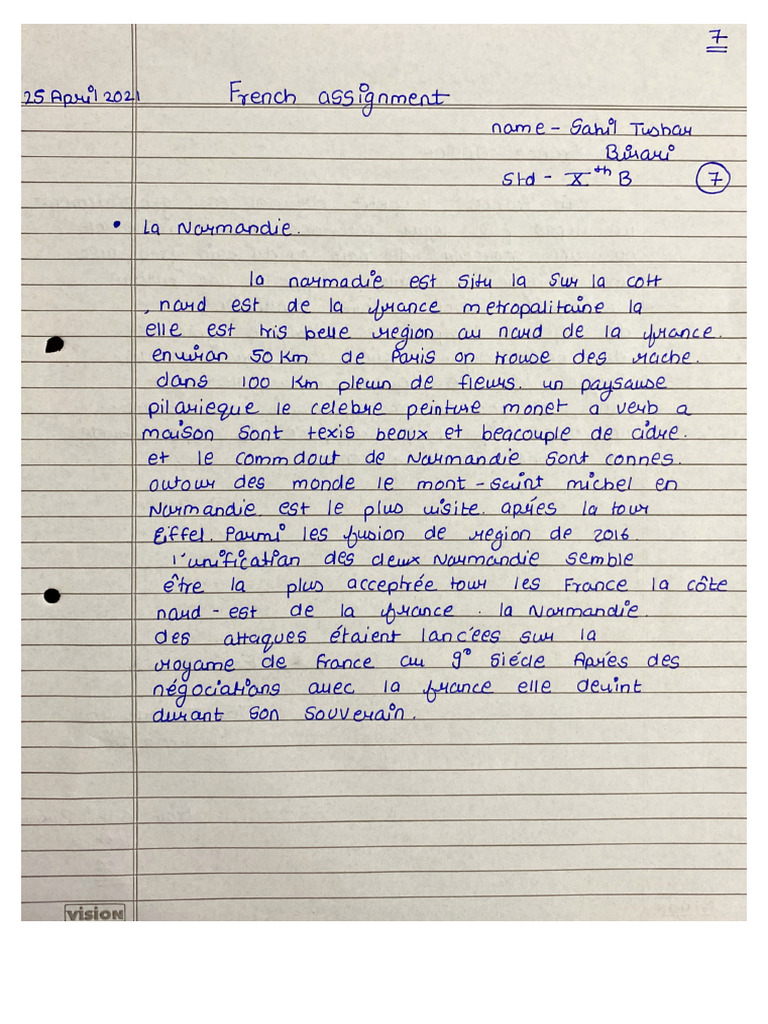 7
25 April 2021 French assignment
name - Sahil Tushar
Birari
Std - Xth B 7
• La Normandie.
la narmadie est situ la sur la cott
, nard est de la france metropalitaine la
elle est tris belle region au nard de la france.
enviran 50 Km de Paris on trouse des rache.
dans 100 Km pleun de fleurs. un paysause
pilarieque le celebre peinture monet a verb a
maison sont texis beoux et beacouple de cidre.
et le commdout de Normandie sont connes.
autour des monde le mont-saint michel en
Normandie est le plus visite. aprés la tour
Eiffel. Parmi les fusion de region de 2016.
l'unification des deux Normandie semble
être la plus acceptrée tour les France la côte
nard-est de la france. la Normandie.
des attaques étaient lancées sur la
royame de France au 9e siécle Aprés des
négociations avec la france elle devint
durant son souverain.
vision